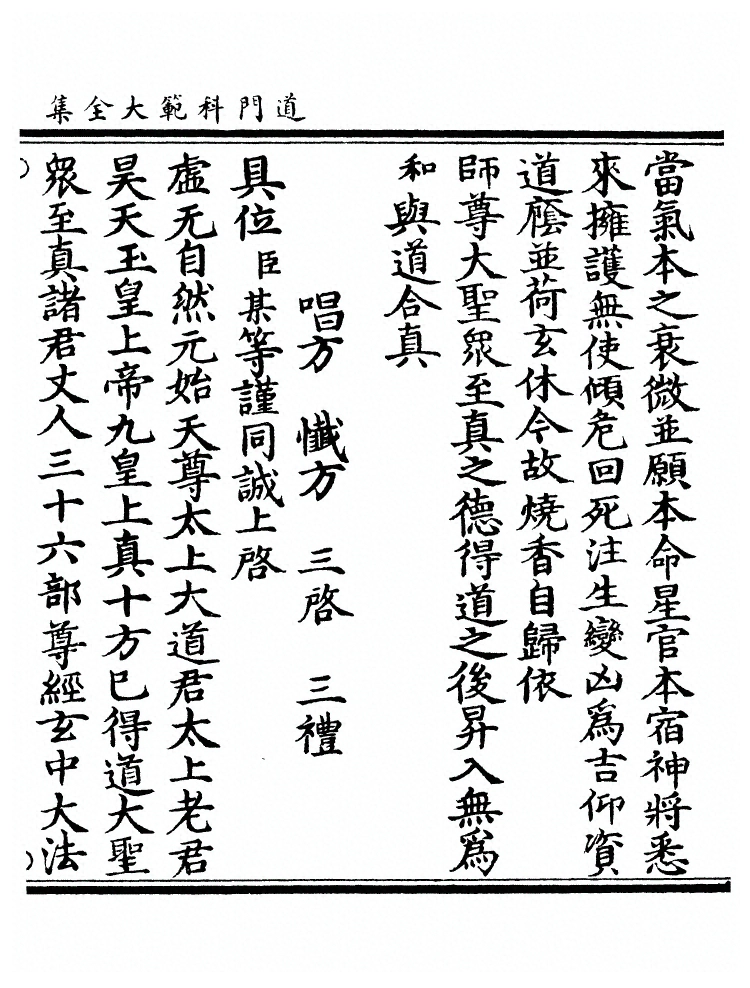 道門科範大全集
當氣本之衰微並願本命星官本宿神將悉
來擁護無使傾危回死注生變凶爲吉仰資
道廕並荷玄休今故燒香自歸依
師尊大聖眾至真之德得道之後昇入無爲
和與道合真
唱方　懺方　三啓　三禮
具位臣某等謹同誠上啓
虛无自然元始天尊太上大道君太上老君
昊天玉皇上帝九皇上真十方已得道大聖
眾至真諸君丈人三十六部尊經玄中大法